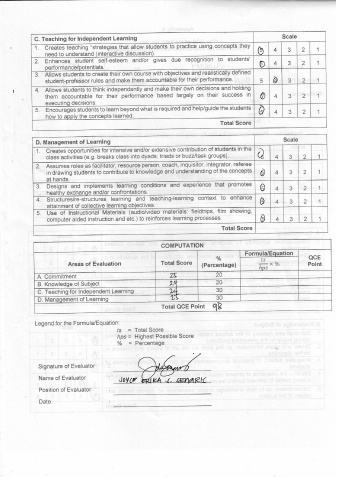 C. Teaching for Independent Learning Scale
1. Creates teaching strategies that allow students to practice using concepts they 5 4 3 2 1
need to understand (interactive discussion).
2. Enhances student self-esteem and/or gives due recognition to students' 5 4 3 2 1
performance/potentials.
3. Allows students to create their own course with objectives and realistically defined 5 4 3 2 1
student-professor rules and make them accountable for their performance.
4. Allows students to think independently and make their own decisions and holding 5 4 3 2 1
them accountable for their performance based largely on their success in
executing decisions.
5. Encourages students to learn beyond what is required and help/guide the students 5 4 3 2 1
how to apply the concepts learned.
Total Score
D. Management of Learning Scale
1. Creates opportunities for intensive and/or extensive contribution of students in the 5 4 3 2 1
class activities (e.g. breaks class into dyads, triads or buzz/task groups).
2. Assumes roles as facilitator, resource person, coach, inquisitor, integrator, referee 5 4 3 2 1
in drawing students to contribute to knowledge and understanding of the concepts
at hands.
3. Designs and implements learning conditions and experience that promotes 5 4 3 2 1
healthy exchange and/or confrontations.
4. Structures/re-structures learning and teaching-learning context to enhance 5 4 3 2 1
attainment of collective learning objectives.
5. Use of Instructional Materials (audio/video materials: fieldtrips, film showing, 5 4 3 2 1
computer aided instruction and etc.) to reinforces learning processes.
Total Score
COMPUTATION
Areas of Evaluation Total Score % (Percentage) Formula/Equation ts/hps x % QCE Point
A. Commitment 25 20
B. Knowledge of Subject 24 20
C. Teaching for Independent Learning 24 30
D. Management of Learning 25 30
Total QCE Point 98
Legend for the Formula/Equation:
ts = Total Score
hps = Highest Possible Score
% = Percentage
Signature of Evaluator :
Name of Evaluator : JOYCE ERIKA
Position of Evaluator :
Date :